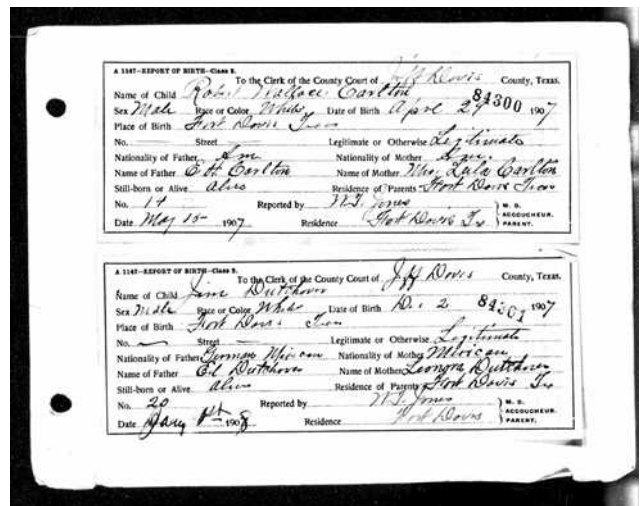 A 1147—REPORT OF BIRTH—Class 2.
To the Clerk of the County Court of Jeff Davis County, Texas.
Name of Child Robert Wallace Carlton
Sex Male Race or Color White Date of Birth Apr 29 1907
84300
Place of Birth Fort Davis Texas
No. Street Legitimate or Otherwise Legitimate
Nationality of Father Am Nationality of Mother Am.
Name of Father Carlton Name of Mother Mrs Lula Carlton
Still-born or Alive alive Residence of Parents Fort Davis Texas
No. 14 Reported by W.T. Jones M. D.
ACCOUCHEUR.
Date May 15 1907 Residence Fort Davis Tx PARENT.
A 1147—REPORT OF BIRTH—Class 2.
To the Clerk of the County Court of Jeff Davis County, Texas.
Name of Child Jim Dutchover
Sex Male Race or Color White Date of Birth Dec 2 1907
84301
Place of Birth Fort Davis Texas
No. Street Legitimate or Otherwise Legitimate
Nationality of Father German Mexican Nationality of Mother Mexican
Name of Father Ed Dutchover Name of Mother Leonora Dutchover
Still-born or Alive alive Residence of Parents Fort Davis Tx
No. 20 Reported by W.T. Jones M. D.
ACCOUCHEUR.
Date Jany 1st 1908 Residence Fort Davis PARENT.